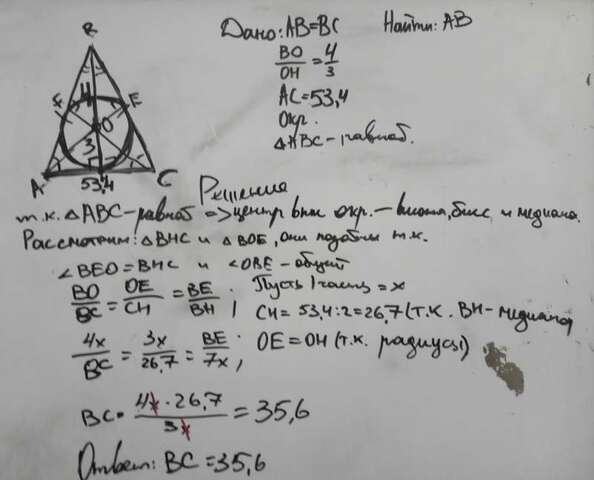 Дано: AB=BC Найти: AB
BO/OH = 4/3
AC=53,4
Окр.
△ABC - равноб.
B
4
F E
O
3
A C
53,4
Решение
т.к. △ABC - равноб => центр впис окр. - высота, бисс и медиана.
Рассмотрим: △BHC и △BOE, они подобны т.к.
∠BEO = BHC и ∠OBE - общий
BO/BC = OE/CH = BE/BH; Пусть 1 часть = x
CH = 53,4:2=26,7 (т.к. BH - медиана)
4x/BC = 3x/26,7 = BE/7x; OE=OH (т.к. радиусы)
BC = 4x · 26,7/3x = 35,6
Ответ: BC = 35,6